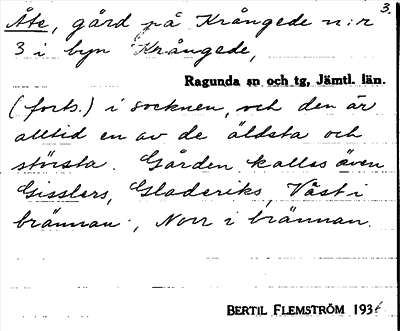 3.
Åte, gård på Krångede n:r
3 i byn Krångede,
Ragunda sn och tg, Jämtl. län.
(forts.) i socknen, och den är
alltid en av de äldsta och
största. Gården kallas även
Gisslers, Gladeriks, Väst i
brännan, Norr i brännan.
BERTIL FLEMSTRÖM 1936